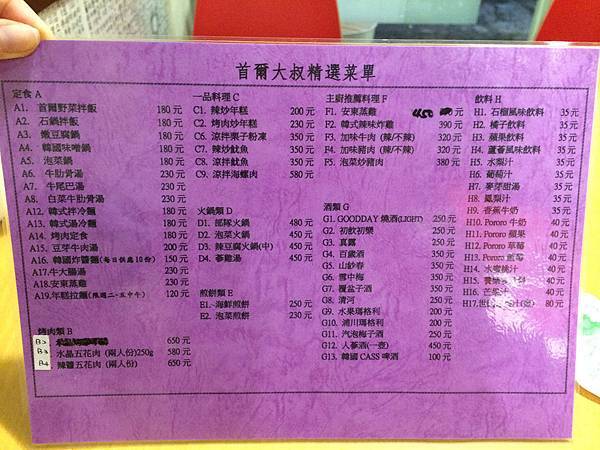 首爾大叔精選菜單
定食 A
A1. 首爾野菜拌飯 180 元
A2. 石鍋拌飯 180 元
A3. 嫩豆腐鍋 180 元
A4. 韓國味噌鍋 180 元
A5. 泡菜鍋 180 元
A6. 牛肋骨湯 230 元
A7. 牛尾巴湯 230 元
A8. 白菜牛肋骨湯 230 元
A12. 韓式拌冷麵 180 元
A13. 韓式湯冷麵 180 元
A14. 烤肉定食 180 元
A15. 豆芽牛肉湯 200 元
A16. 韓國炸醬麵(每日供應10份) 150 元
A17.牛大腸湯 230 元
A18.安東蒸雞 230 元
A19.年糕拉麵(限週二-五中午) 120 元
烤肉類 B
B2 650 元
B3 水晶五花肉 (兩人份)250g 580 元
B4 辣醬五花肉 (兩人份) 650 元
一品料理 C
C1. 辣炒年糕 200 元
C2. 烤肉炒年糕 230 元
C6. 涼拌栗子粉凍 350 元
C7. 辣炒魷魚 350 元
C8. 涼拌魷魚 350 元
C9. 涼拌海螺肉 580 元
火鍋類 D
D1. 部隊火鍋 480 元
D2. 泡菜火鍋 450 元
D3. 辣豆腐火鍋(中) 450 元
D4. 蔘雞湯 450 元
煎餅類 E
E1. 海鮮煎餅 250 元
E2. 泡菜煎餅 230 元
主廚推薦料理 F
F1. 安東蒸雞 450 元
F2. 韓式辣味炸雞 390 元
F3. 加味牛肉 (辣/不辣) 320 元
F4. 加味豬肉 (辣/不辣) 320 元
F5. 泡菜炒豬肉 380 元
酒類 G
G1. GOODDAY 燒酒(LIGHT) 250 元
G2. 初飲初樂 250 元
G3. 真露 250 元
G4. 百歲酒 350 元
G5. 山鈔春 350 元
G6. 雪中梅 350 元
G7. 覆盆子酒 350 元
G8. 清河 250 元
G9. 水果瑪格利 200 元
G10. 浦川瑪格利 200 元
G11. 汽泡梅子酒 250 元
G12. 人蔘酒(一壺) 450 元
G13. 韓國 CASS 啤酒 100 元
飲料 H
H1. 石榴風味飲料 35 元
H2. 橘子飲料 35 元
H3. 蘋果飲料 35 元
H4. 蘆薈風味飲料 35 元
H5. 水梨汁 35 元
H6. 葡萄汁 35 元
H7. 麥芽甜湯 35 元
H8. 鳳梨汁 35 元
H9. 香蕉牛奶 35 元
H10. Pororo 牛奶 40 元
H11. Pororo 蘋果 40 元
H12. Pororo 草莓 40 元
H13. Pororo 藍莓 40 元
H14. 水蜜桃汁 40 元
H15. 40 元
H16. 芒果汁 40 元
H17. 80 元